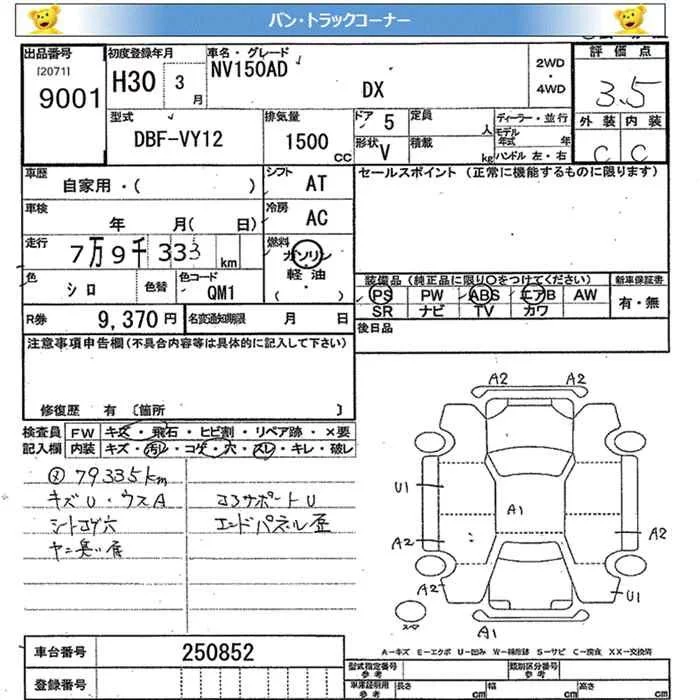 バン・トラックコーナー
出品番号
[2071]
9001
初度登録年月
H30 3 月
車名・グレード
NV150AD
DX
2WD
・
4WD
評価点
3.5
外装 内装
C C
型式
DBF-VY12
排気量
1500 cc
ドア 5
形状 V
定員 人
積載 kg
ディーラー・並行
モデル年式 年
ハンドル 左・右
車歴
自家用・( )
シフト AT
セールスポイント (正常に機能するものに限ります)
車検
年 月( 日)
冷房 AC
走行
7万9千333 km
燃料
ガソリン
・
軽油
( )
色
シロ
色替
色コード
QM1
装備品 (純正品に限り○をつけてください)
PS PW ABS エアB AW
SR ナビ TV カワ
新車保証書
有・無
R券 9,370円
名変通知期限 月 日
後日品
注意事項申告欄(不具合内容等は具体的に記入して下さい)
修復歴 有 [箇所 ]
検査員記入欄
FW キズ・飛石・ヒビ割・リペア跡・×要
内装 キズ・汚レ・コゲ・穴・スレ・キレ・破レ
79335km
キズU・ウスA
シートコゲ穴
コアサポートU
エンドパネル歪
A2 A2
U1
A1
A2
A2
A2
U1
A1
スペア
A-キズ E-エクボ U-凹み W-補修跡 S-サビ C-腐食 XX-交換済
車台番号 250852
登録番号
型式指定番号 参考
類別区分番号 参考
車庫証明用 参考
長さ cm
幅 cm
高さ cm